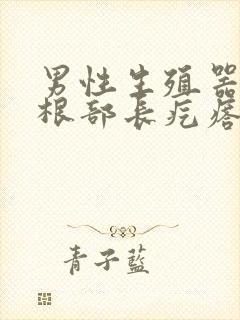 男性生殖器
根部长疙瘩
青子蓝